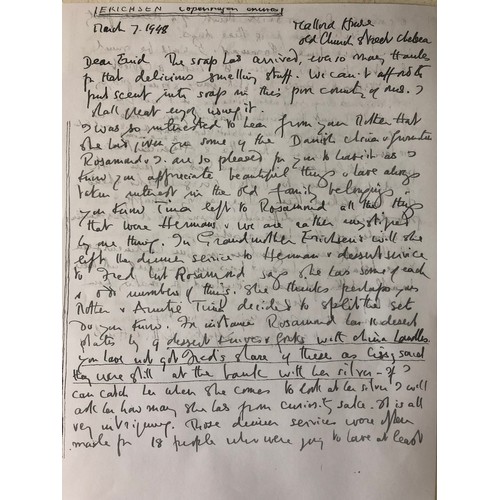 ERICHSEN Copenhagen china
March 7. 1948
Mallord House
Old Church Street Chelsea
Dear Enid The soap has arrived, ever so many thanks
for that delicious smelling stuff. We can't afford to
put scent into soaps in this poor country of ours. I
shall great enjoy using it.
I was so interested to hear from your Mother that
she has given you some of the Danish china &
Rosamond & I are so pleased for you to have it as I
know you appreciate beautiful things & have always
taken interest in the old family belongings.
You know Tina left to Rosamond all the things
that were Hermans & we are rather mystified
by one thing. In Grandmother Erichsen's will she
left the dinner service to Herman & dessert service
to Fred but Rosamond says she has some of each
& odd numbers of things. She thinks perhaps your
Mother & Auntie Tina decided to split the set
Do you know. For instance Rosamond has 11 dessert
plates & 9 dessert knives & forks with china handles.
You have not got Fred's share of these as said
they were still at the bank with her silver - If I
can catch her when she comes to look at her silver I will
ask her how many she has from curiosity sake. It is all
very intriguing. Those dinner services were often
made for 18 people who were going to have at least